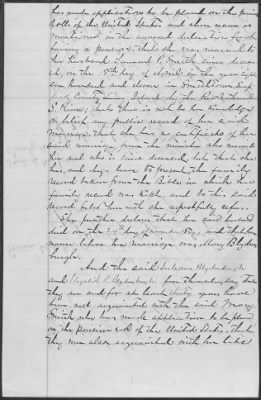 has made application to be placed on the pension
Rolls of the United States and whose name is
mentioned in the annexed declaration for ob-
taining a pension, that she was married to
her husband Samuel P. Smith, since deceas-
ed, on the 5th day of April in the year eight-
een hundred and eleven in Smithtown Suf-
by the
that there is not to her knowledge
or belief any public record of her said
marriage, that she has no certificate of her
said marriage, and the minister who married
her and also is since deceased, but that she
has, and begs leave to present, the family
record taken from the Bible in which her
family record was kept, and to this said
record filed herewith she respectfully refers.
She further declares that her said husband
died on the 29th day of and that her
name before her marriage was Mary Blyden-
burgh.
And the said Blydenburgh
and Elizabeth Blydenburgh for themselves, say that
they are and for at least thirty years, have
been well acquainted with the said Mary
Smith who has made application to be placed
on the pension roll of the United States, that
they were also acquainted with her late